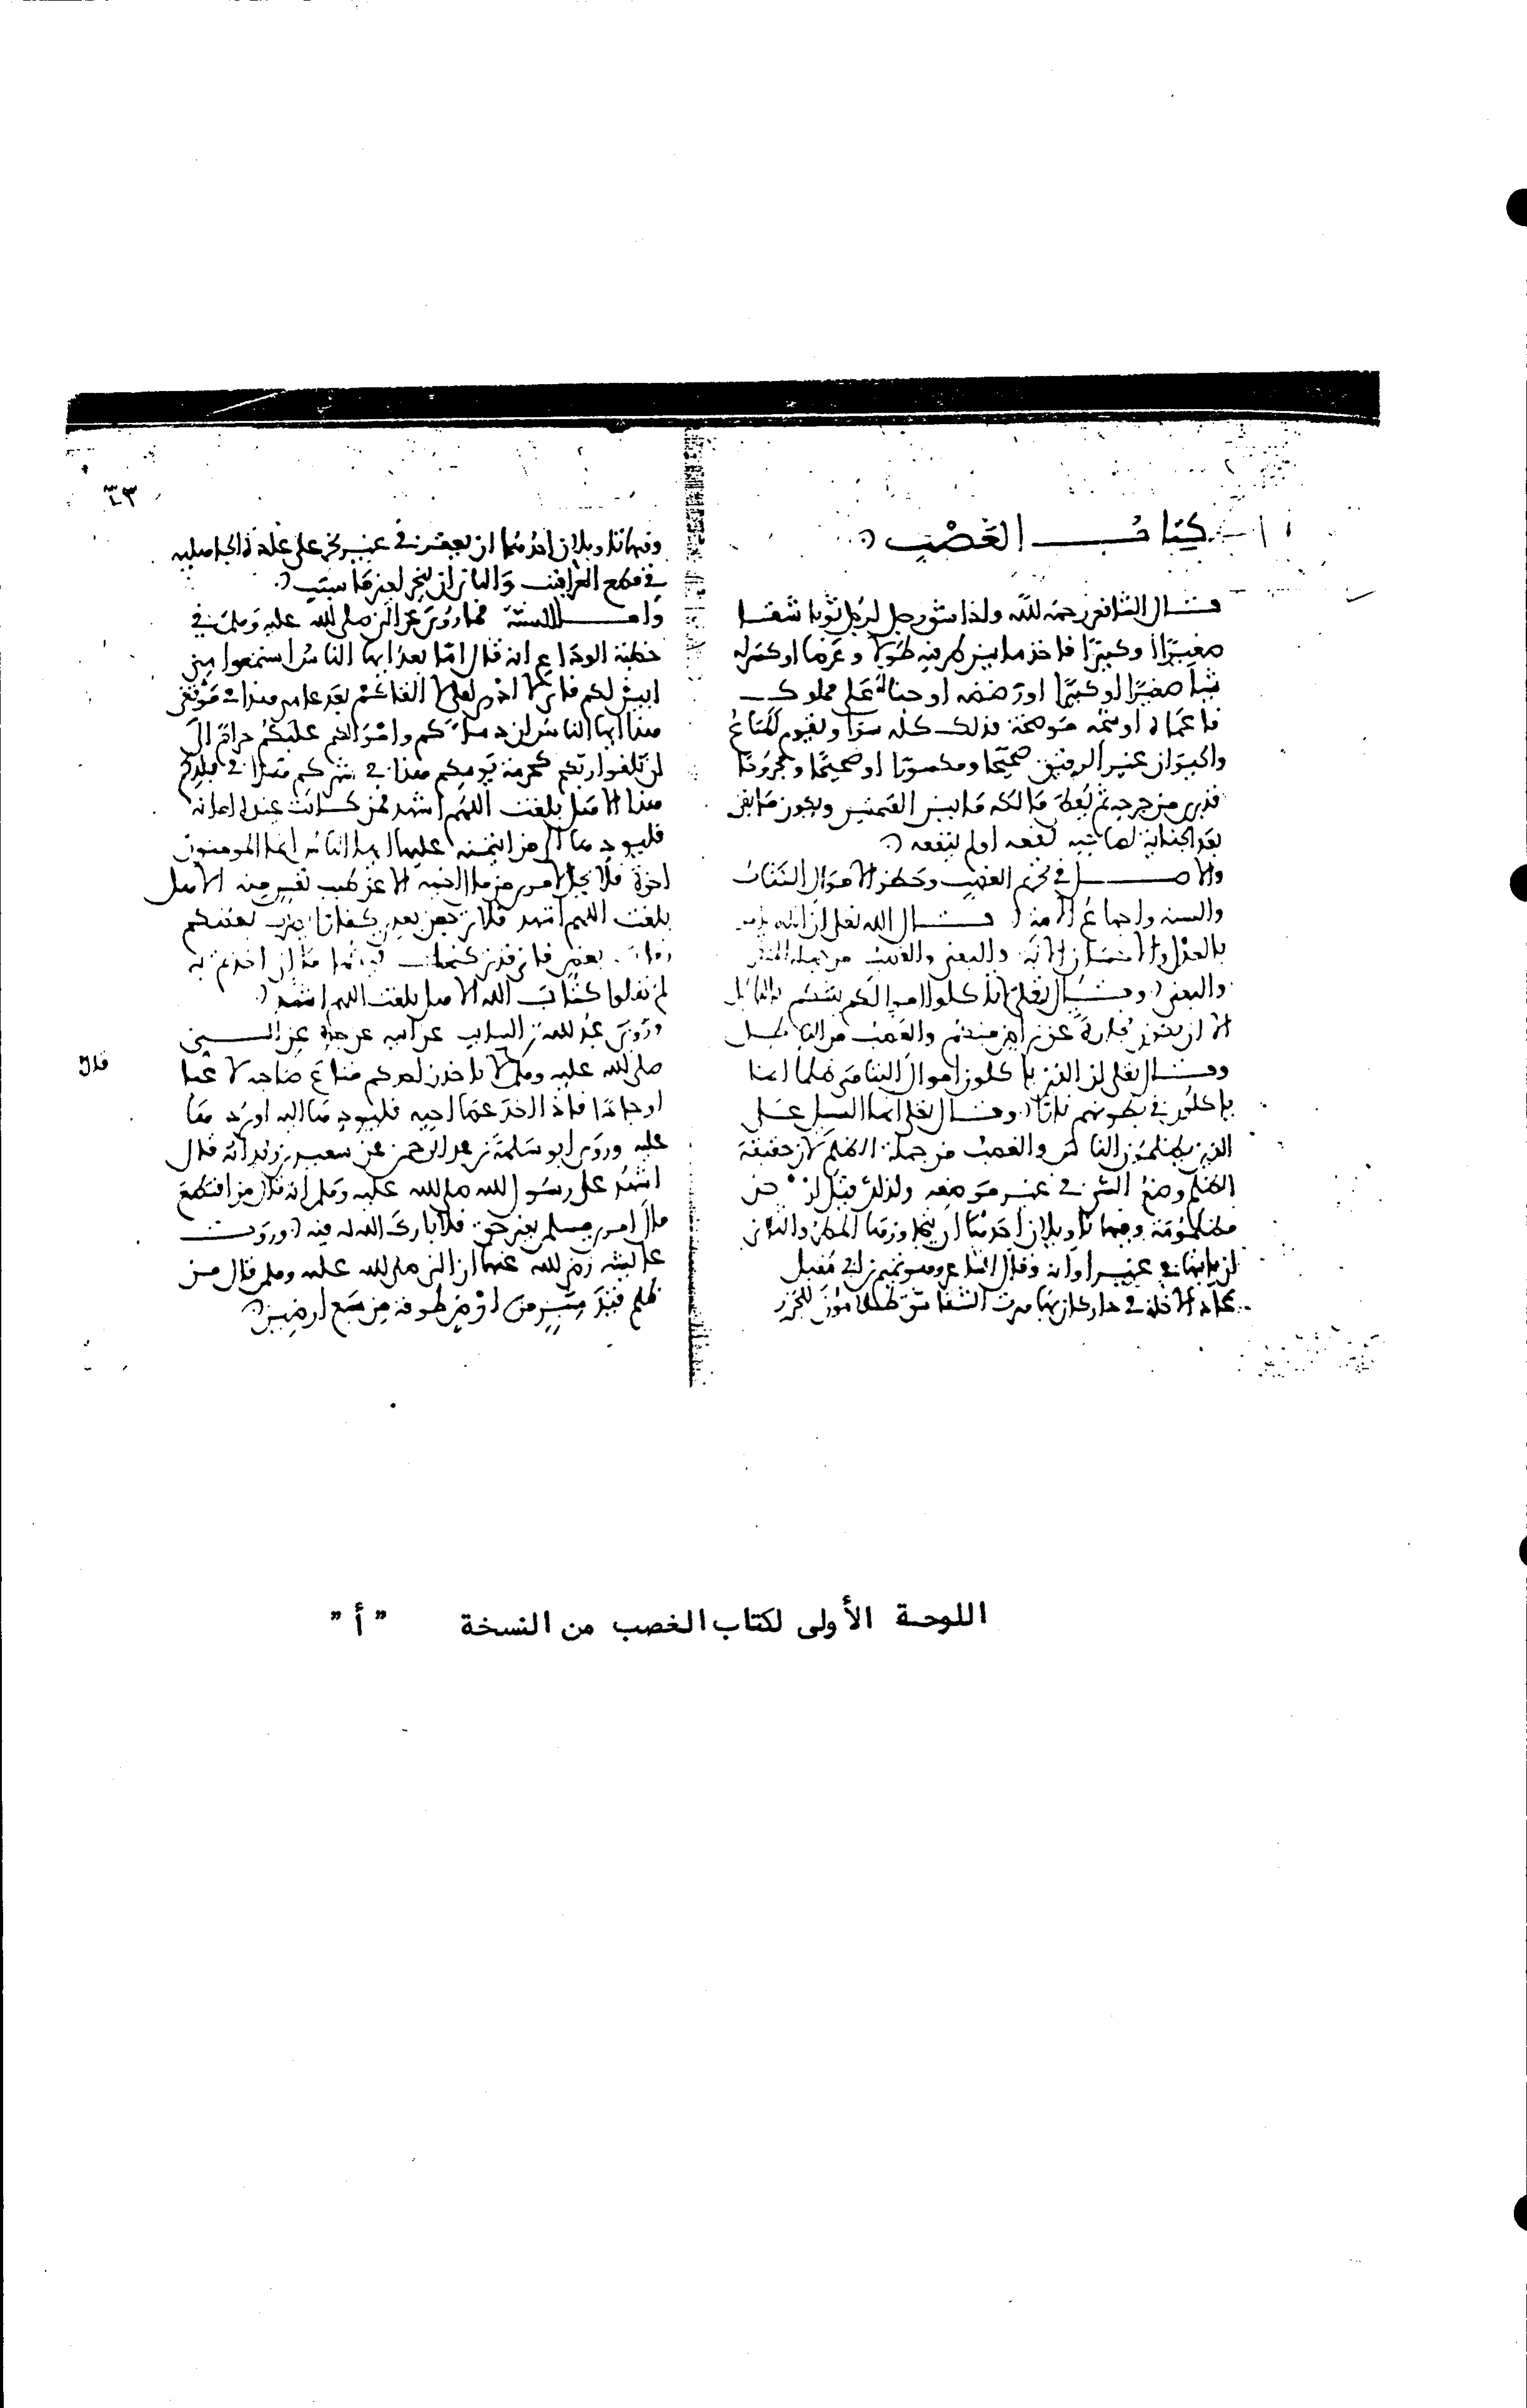 كتاب الغصب
قال الشافعي رحمه الله واذا شق رجل لرجل ثوبا شقا
صغيرا او كبيرا فاخذ ما بين طرفيه طولا وعرضا او كسر له
شيا صغيرا او كبيرا او رضضه او جنا له على مملوك
فاعماه او شجه موضحة فذلك كله سوا ويقوم المتاع
والحيوان غير الرقيق صحيحا ومكسورا او صحيحا ومجروحا
قد برى من جرحه ثم يعطى مالكه ما بين القيمتين ويكون ما بقى
بعد الجناية لصاحبه نفعه او لم ينفعه
والاصل في تحريم الغصب وحظر الاموال الكتاب
والسنة واجماع الامة قال الله تعالى ان الله يامر
بالعدل والاحسان الاية والبغى والغصب من جملة المنكر
والبغى وقال تعالى لا تاكلوا اموالكم بينكم بالباطل
الا ان تكون تجارة عن تراض منكم والغصب من الباطل
وقال تعالى ان الذين ياكلون اموال اليتامى ظلما انما
ياكلون في بطونهم نارا وقال تعالى انما السبيل على
الذين يظلمون الناس والغصب من جملة الظلم لان حقيقة
الظلم وضع الشى في غير موضعه ولذلك قيل
مظلومة وفيها تاويلان احدهما ان يتجاوزها المطر والثاني
ان ياتيها في غير اوانه وقال الشاعر وهو تميم بن ابي مقبل
عاد الاذلة في دار وكان بها هرت الشقاشق ظلامون للجزر
٤٣
وفيها تاويلان احدهما ان في غير على عادة الجاهلية
في والثاني ان ينحر لغير ما سبب
واما السنة فما روى عن النبي صلى الله عليه وسلم في
خطبة الوداع انه قال اما بعد ايها الناس اسمعوا مني
ابين لكم فاني لا ادري لعلي لا القاكم بعد عامي هذا في موقفي
هذا ايها الناس ان دماكم واموالكم عليكم حرام الى
ان تلقوا ربكم كحرمة يومكم هذا في شهركم هذا في بلدكم
هذا الا هل بلغت اللهم اشهد فمن كانت عنده امانة
فليودها الى من ائتمنه عليها ايها الناس انما المومنون
اخوة فلا يحل لامرى من مال اخيه الا عن طيب نفس منه الا هل
بلغت اللهم اشهد فلا ترجعن بعدي كفارا يضرب بعضكم
رقاب بعض فاني قد تركت فيكم ما ان اخذتم به
لم تضلوا كتاب الله الا هل بلغت اللهم اشهد
وروى عبد الله بن السايب عن ابيه عن جده عن النبي
صلى الله عليه وسلم لا ياخذن احدكم متاع صاحبه لاعبا
او جادا فاذا اخذ عصا اخيه فليود
عليه وروى ابو سلمة بن عبد الرحمن عن سعيد بن زيد انه قال
اشهد على رسول الله صلى الله عليه وسلم انه قال من اقتطع
مال امرى مسلم بغير حق فلا بارك الله له فيه وروت
عايشة رضى الله عنها ان النبي صلى الله عليه وسلم قال من
ظلم قيد شبر من ارض طوقه من سبع ارضين
قال
اللوحة الأولى لكتاب الغصب من النسخة "أ"